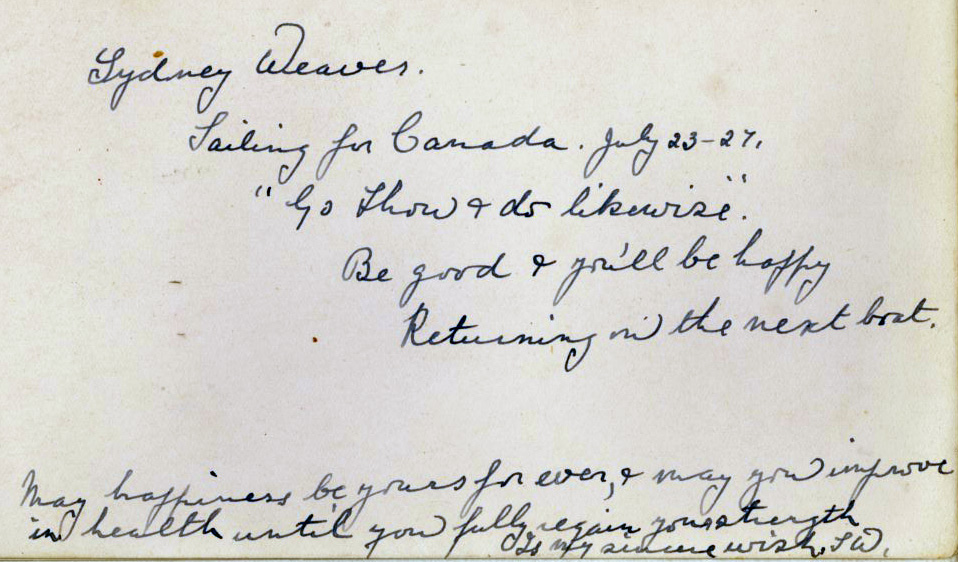 Sydney Weaver.
Sailing for Canada. July 23-27.
"Go thou & do likewise".
Be good & you'll be happy
Returning on the next boat.
May happiness be yours for ever, & may you improve
in health until you fully regain your strength
Is my sincere wish. S.W.